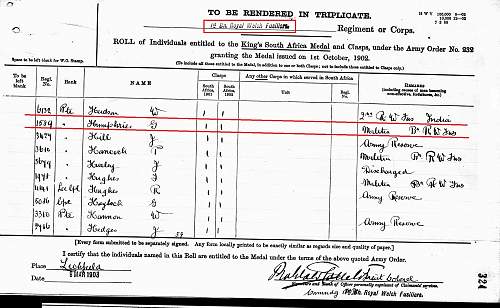 TO BE RENDERED IN TRIPLICATE.
1st Bn. Royal Welch Fusiliers Regiment or Corps.
ROLL of Individuals entitled to the King's South Africa Medal and Clasps, under the Army Order No. 232
granting the Medal issued on 1st October, 1902.
Space to be left blank for W.O. Stamp.
(To include all those entitled to the Medal, in addition to one or both Clasps; not to include those entitled to Clasps only.)
To be left blank
Regl. No.
Rank
NAME
Clasps
South Africa, 1901
South Africa, 1902
Any other Corps in which served in South Africa
Unit
Regl. No.
REMARKS
6132 Pte Hudson W 1 1 2nd R W Fus India
1584 " Humphries G 1 1 Militia Bn R W Fus
3429 " Hill J 1 1 Army Reserve
3610 " Hancock T 1 1 Militia Bn R W Fus
" J 1 1 Discharged
" Hughes J 1 1 Militia Bn R W Fus
Hughes R 1 1 Army Reserve
Haylock G 1 1
3310 Pte W 1 1 Army Reserve
" Hedges J 1 1
[Every form submitted to be separately signed. Any form locally printed to be exactly similar as regards size and quality of paper.]
I certify that the individuals named in this Roll are entitled to the Medal under the terms of the above quoted Army Order.
Place Lichfield
Date 6 MAR 1903
Signature and Rank of Officer personally cognizant of Claimants' services.
Commdg 1st Bn. Royal Welch Fusiliers.
324